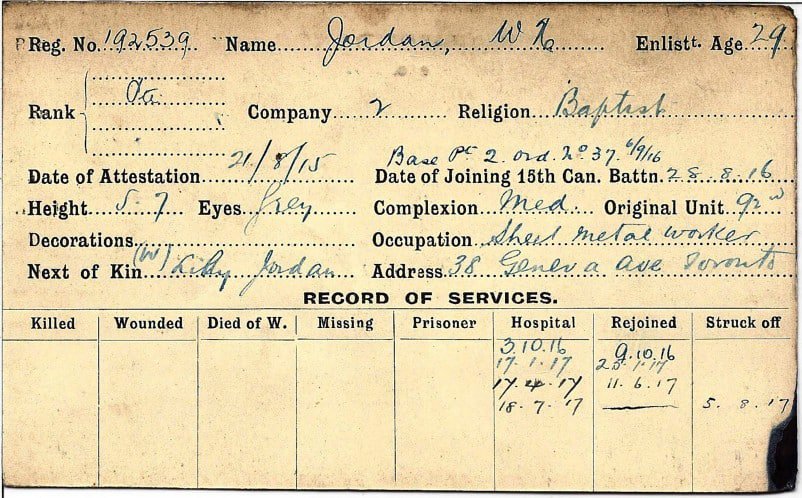 Reg. No. 192539 Name Jordan, W Enlistt. Age 29
Rank Pte Company 2 Religion Baptist
Base Pt 2. Ord. No 37. 6/9/16
Date of Attestation 21/8/15 Date of Joining 15th Can. Battn. 28.8.16
Height 5.7 Eyes Grey Complexion Med. Original Unit 92nd
Decorations Occupation Sheet metal worker
Next of Kin (W) Jordan Address 38 Geneva Ave Toronto
RECORD OF SERVICES.
Killed Wounded Died of W. Missing Prisoner Hospital Rejoined Struck off
3.10.16 9.10.16
17.1.17 1.17
17.4.17 11.6.17
18.7.17 5.8.17